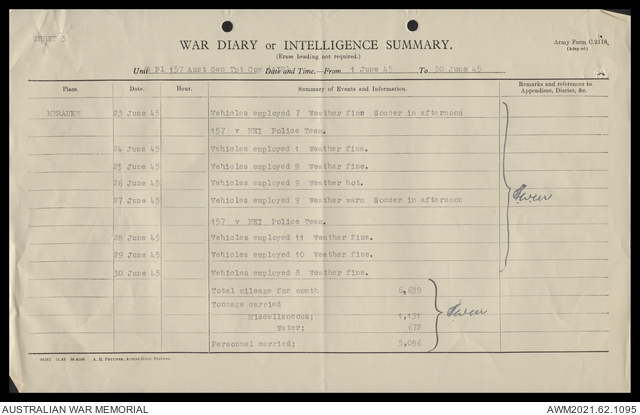 SHEET 3
WAR DIARY or INTELLIGENCE SUMMARY.
(Erase heading not required.)
Army Form C.2118.
(Adap. of)
Unit Pl 157 Aust Gen Tpt Coy Date and Time.—From 1 June 45 To 30 June 45
Place. Date. Hour. Summary of Events and Information. Remarks and references to Appendices, Diaries, &c.
MERAUKE 23 June 45 Vehicles employed 7 Weather fine Soccer in afternoon
157 v NEI Police Team.
24 June 45 Vehicles employed 1 Weather fine.
25 June 45 Vehicles employed 9 Weather fine.
26 June 45 Vehicles employed 9 Weather hot.
27 June 45 Vehicles employed 9 Weather warm Soccer in afternoon
157 v NEI Police Team.
28 June 45 Vehicles employed 11 Weather fine.
29 June 45 Vehicles employed 10 Weather fine.
30 June 45 Vehicles employed 8 Weather fine.
Total mileage for month 6,639
Tonnage carried
Miscellaneous; 1,191
Water; 672
Personnel carried; 9,096
A. H. Pettifer, Acting Govt. Printer.
AUSTRALIAN WAR MEMORIAL
AWM2021.62.1095